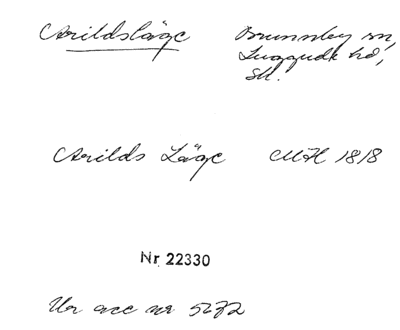 Arildsläge Brunnby sn,
Luggude hd,
Sk.
Arilds Läge MH 1818
Nr 22330
Ur acc nr 5672